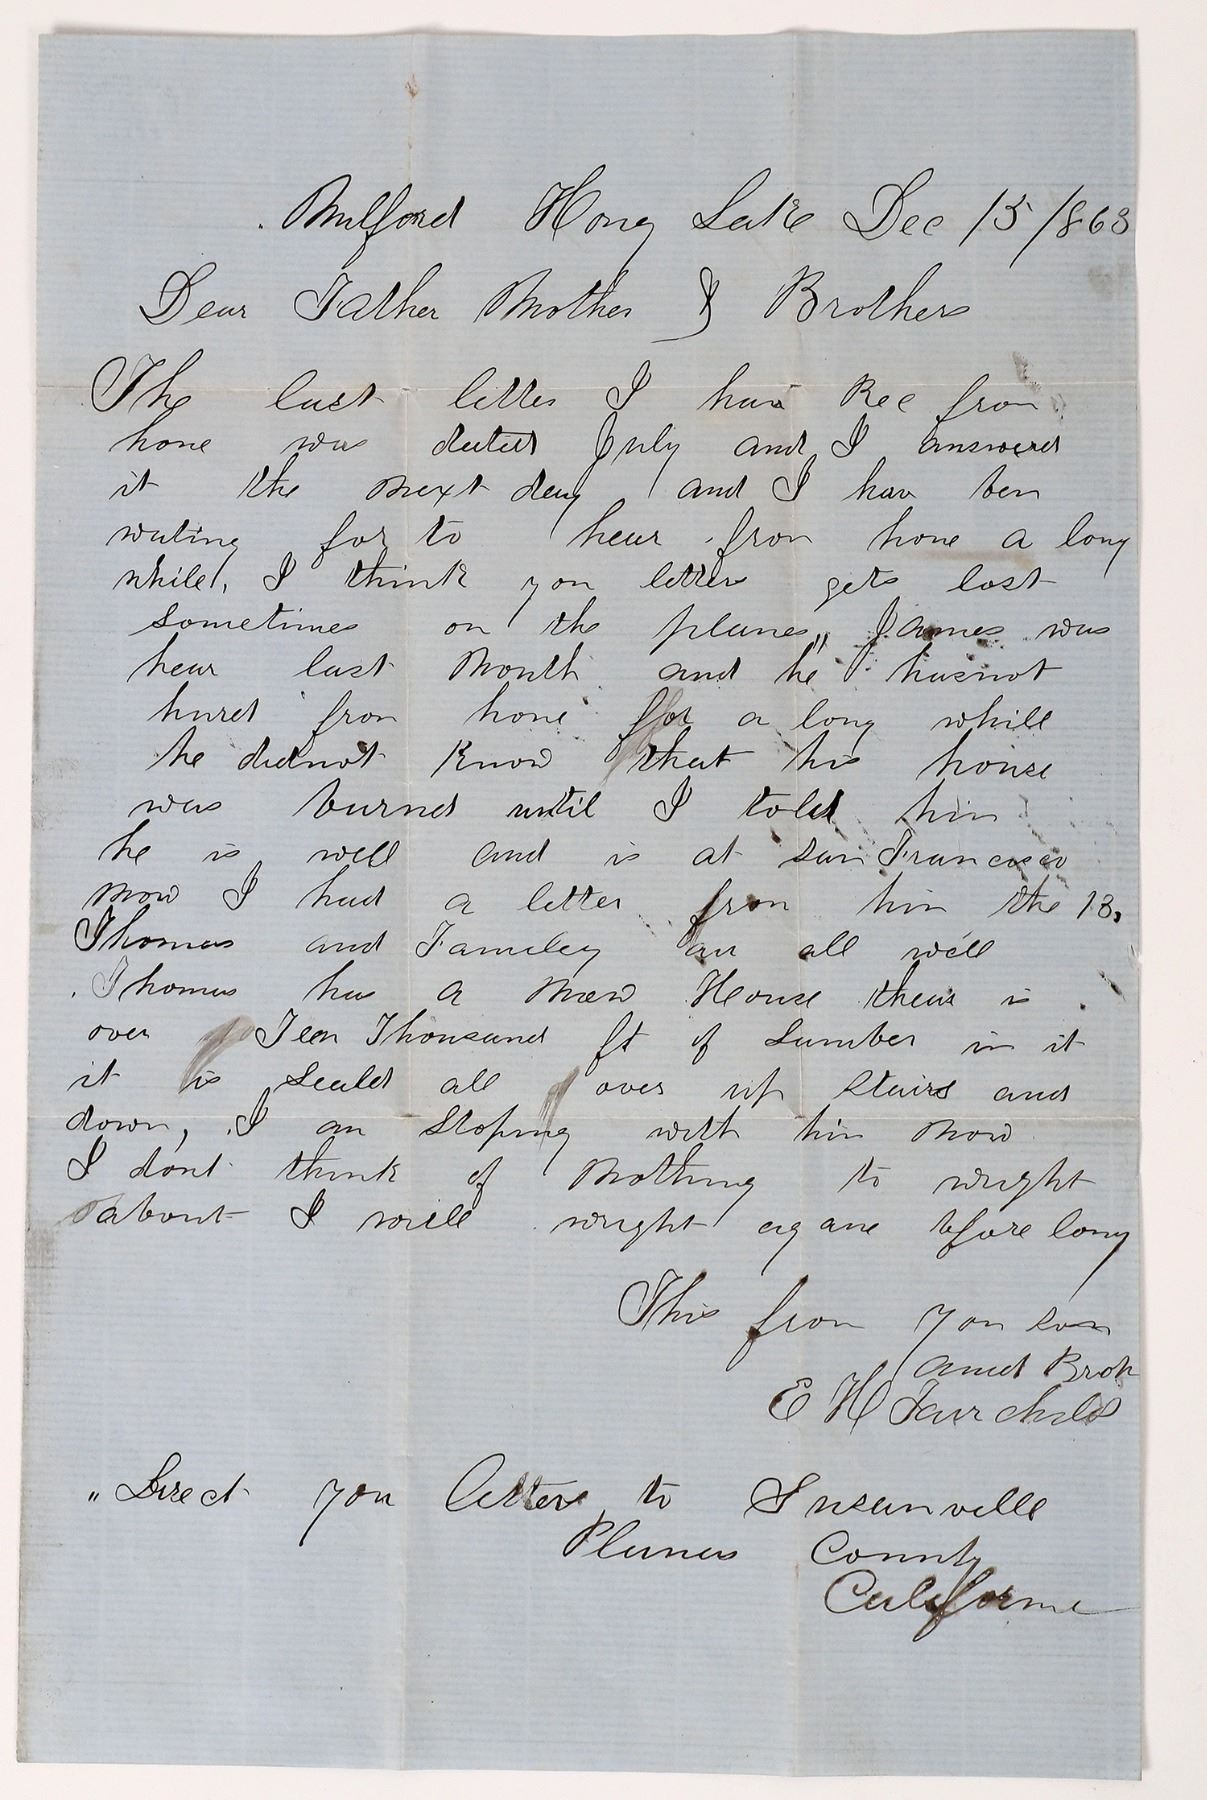 Milford Hony Lake Dec 15 /1863
Dear Father Mother & Brothers
The last letter I hav Rec from
home was dated July and I answered
it the next day and I hav ben
wating for to hear from home a long
while, I think you letters gets lost
sometimes on the planes,, James was
hear last Month and he hasnot
hured from home for a long whill
he didnot know that his house
was burned until I told him
he is well and is at San Francisco
now I had a letter from him the 13,
Thomas and Familey ar all well
Thomas has a new House thear is
over Teen Thousand ft of Lumber in it
it is Seald all over up Stairs and
down, I am Stoping with him now
I dont think of nothing to wright
about I will wright agane before long
This from you son
and Broth
E H Fairchild
" Direct you letters to Susanville
Plumas County
California